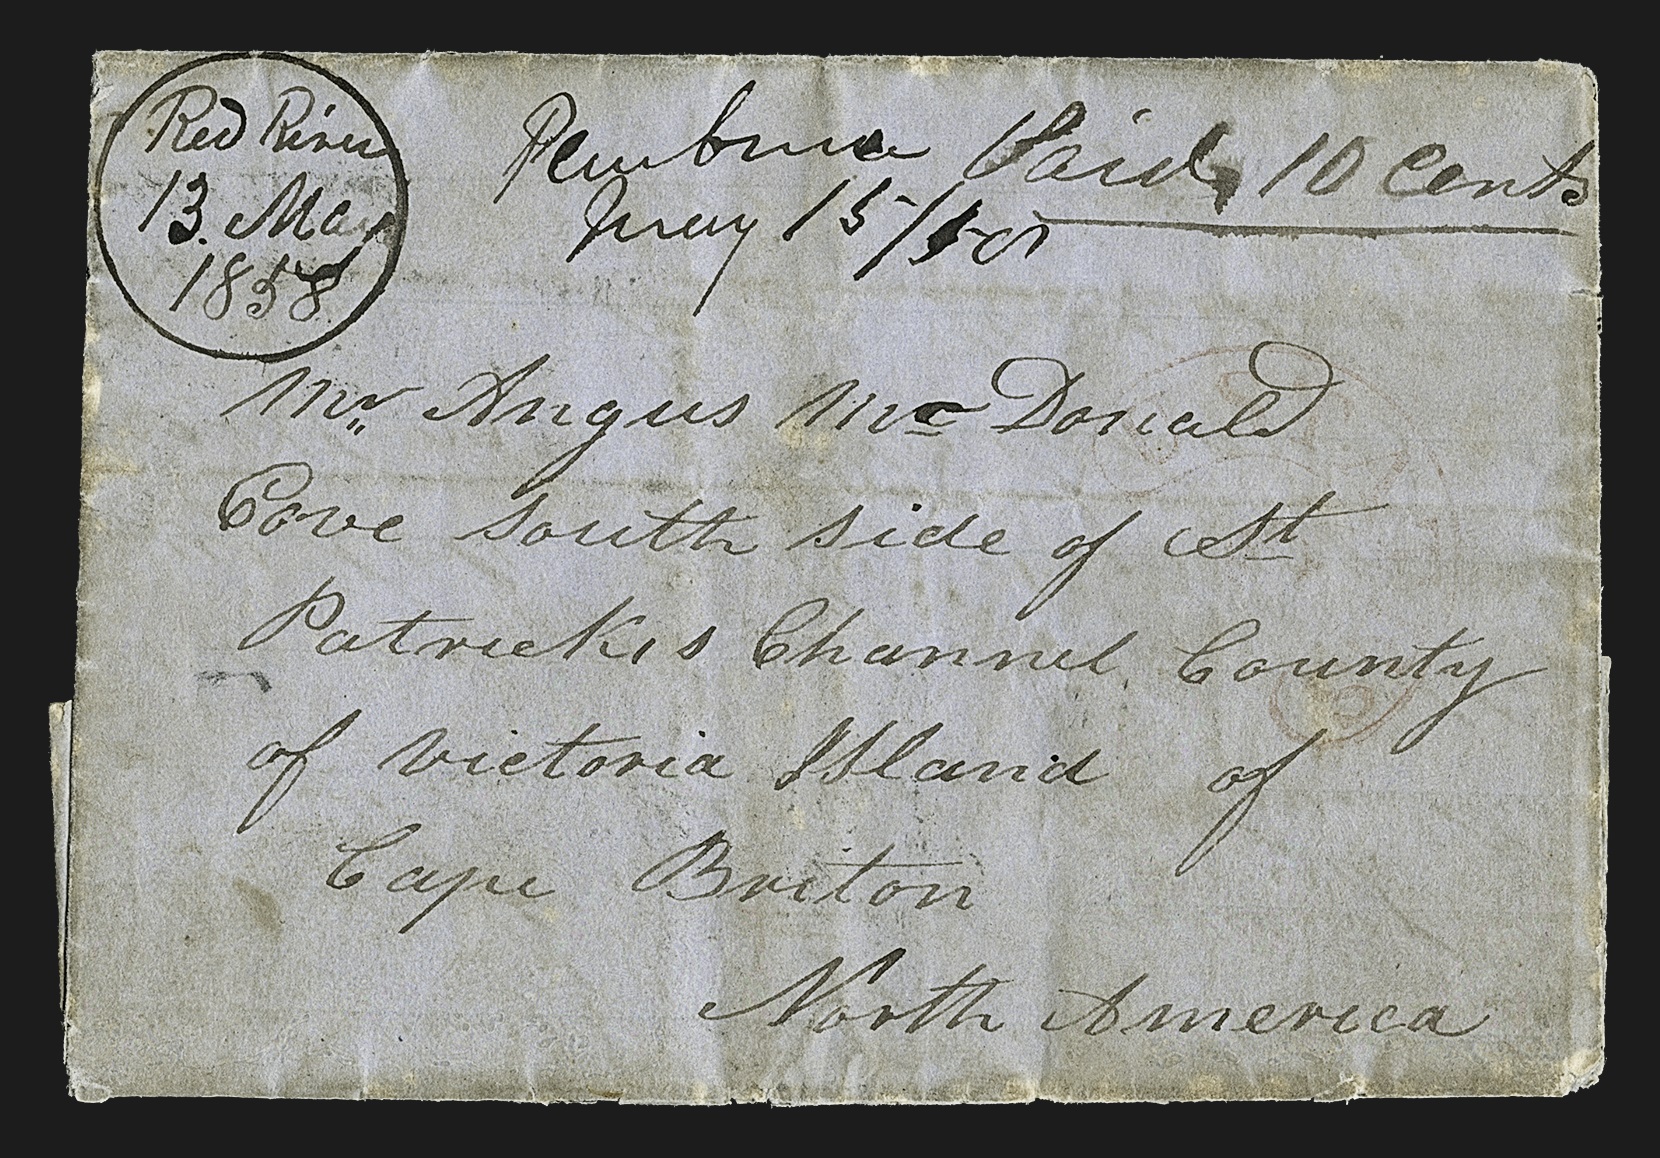 Red River
13. May
1858
Pembina Paid, 10 Cents
May 15/58
Mr. Angus McDonald
Cove South side of St
Patrickis Channel County
of Victoria Island of
Cape Briton
North America